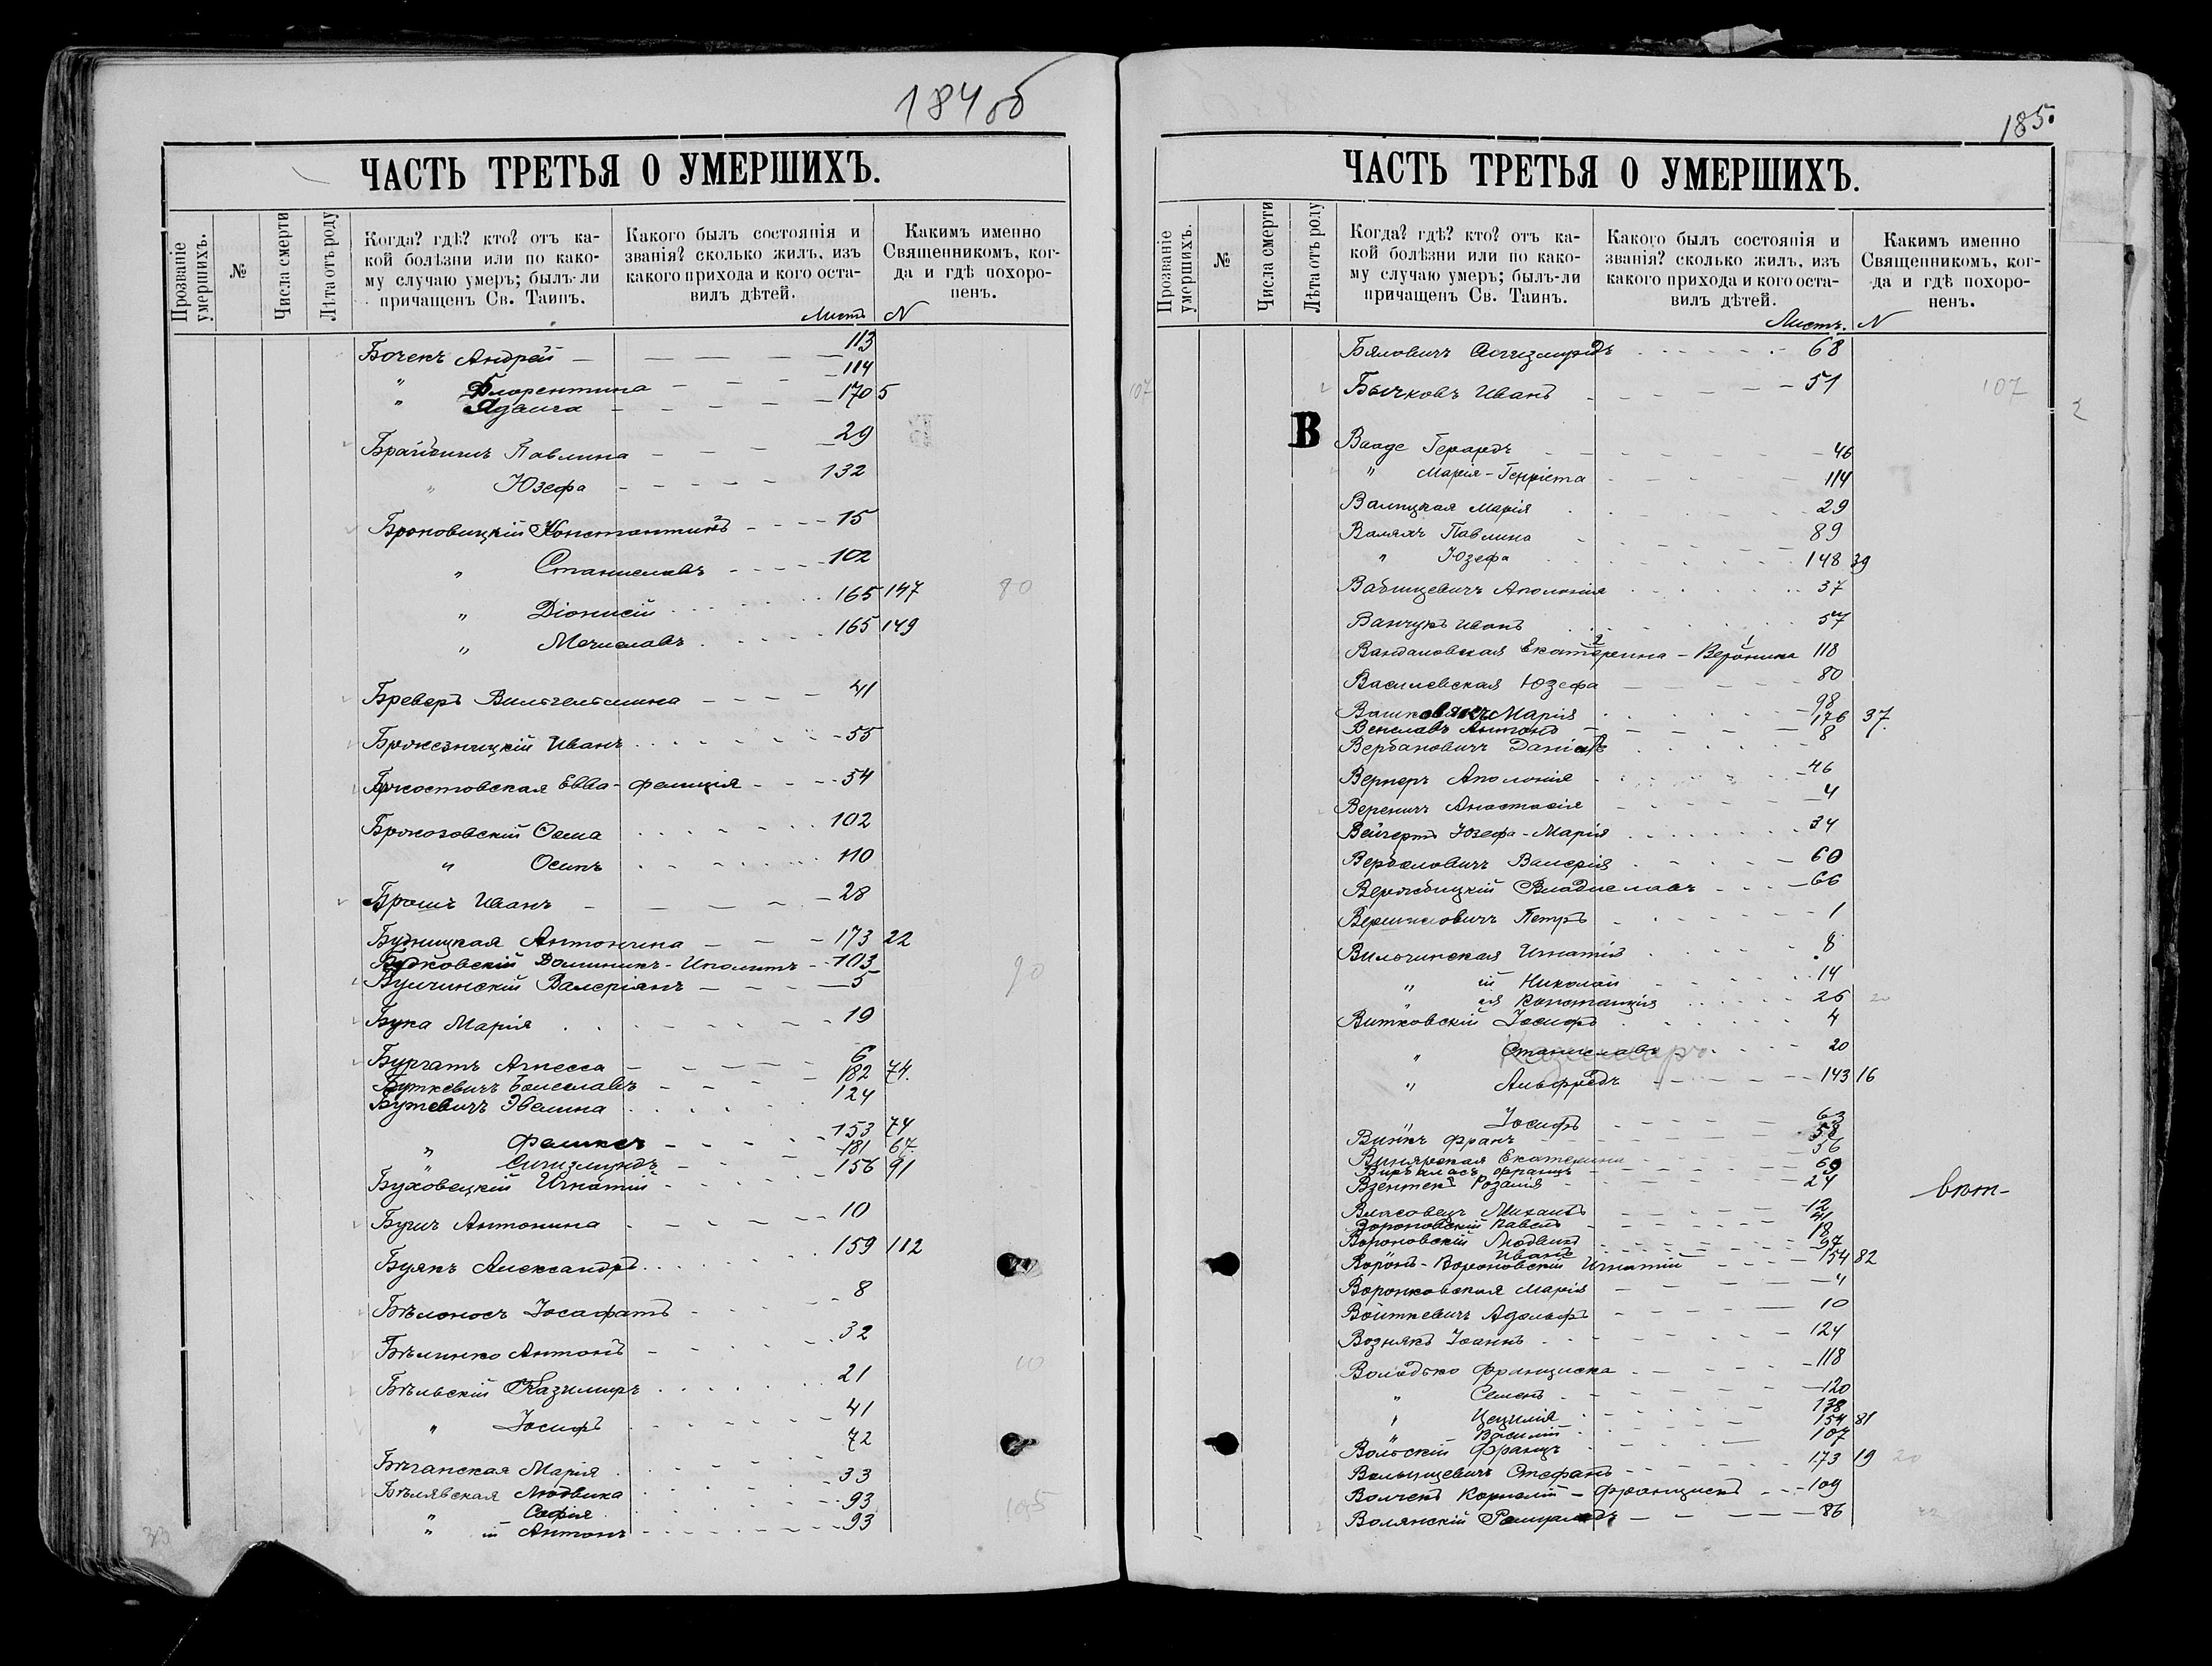 184 об
ЧАСТЬ ТРЕТЬЯ О УМЕРШИХЪ.
Прозваніе умершихъ.
№
Числа смерти
Лѣта отъ роду
Когда? гдѣ? кто? отъ ка-
кой болѣзни или по како-
му случаю умеръ; былъ-ли
причащенъ Св. Таинъ.
Какого былъ состоянія и
званія? сколько жилъ, изъ
какого прихода и кого оста-
вилъ дѣтей.
Какимъ именно
Священникомъ, ког-
да и гдѣ похоро-
ненъ.
Листъ N
Боченъ Андрей 113
" Флорентина 114
" Ядвига 170 5
Павлина 29
" Юзефа 132
Броновицкій Константинъ 15
" Станиславъ 102
" Діонисій 165 147
80
" Мечиславъ 165 149
Бреверъ Вильгельмина 41
Иванъ 55
Бржостовская Евва-Фелиція 54
Бржозовскій 102
" Осипъ 110
Брошъ Иванъ 28
Будницкая Антонина 173 22
Будковскій Доминикъ-Иполитъ 103
90
Валеріанъ 5
Бука Марія 19
Бургатъ Агнесса 6
Буткевичъ Болеславъ 182 74.
Бутевичъ Эвелина 124
" Феликсъ 153 74
" Сигизмундъ 181 67.
Буховецкій Игнатій 156 91
Антонина 10
Буякъ Александръ 159 112
Бѣлоносъ Іосафатъ 8
Бѣлинко Антонъ 32
Бѣльскій Казимиръ 21
" Іосифъ 41
Бѣганская Марія 72
Бѣлявская Людвика 33
" Софія 93
" ій Антонъ 93
185.
ЧАСТЬ ТРЕТЬЯ О УМЕРШИХЪ.
Прозваніе умершихъ.
№
Числа смерти
Лѣта отъ роду
Когда? гдѣ? кто? отъ ка-
кой болѣзни или по како-
му случаю умеръ; былъ-ли
причащенъ Св. Таинъ.
Какого былъ состоянія и
званія? сколько жилъ, изъ
какого прихода и кого оста-
вилъ дѣтей.
Какимъ именно
Священникомъ, ког-
да и гдѣ похоро-
ненъ.
Листъ. N
Бяловичъ 68
Бычковъ Иванъ 51
107
В
Вааде Герардъ 46
" Марія-Генріета 114
Валицкая Марія 29
Валяхъ Павлина 89
" Юзефа 148 39
Вабищевичъ Аполонія 37
Ванчукъ Иванъ 57
Вандаловская Екатерина - Вероника 118
Василевская Юзефа 80
Марія 98
Венславъ Антонъ 176 37.
Вербановичъ 8
Вернеръ Аполонія 46
Вереничъ Анастасія 4
Вейгертъ Юзефа-Марія 34
Валерія 60
Вержбицкій Владиславъ 66
Петръ 1
Вильчинская Игнатій 8
" ій Николай 14
" ая Констанція 26
Витковскій Іосифъ 4
" Станиславъ 20
Казимиръ
" Альфредъ 143 16
Іосифъ 63
Францъ 58
Винярская Екатерина 56
Францъ 69
Розалія 24
Власовецъ Михаилъ 12
Вороновскій Павелъ 41
Вороновскій Людвикъ 18
Иванъ 97
Воронъ-Вороновскій Игнатій 154 82
Воронковская Марія 4
Войткевичъ Адольфъ 10
Вознякъ Іоаннъ 124
Володько Франциска 118
" Семенъ 120
" Цецилія 138
" Василій 154 81
Вольскій Францъ 107
Стефанъ 173 19
20
Волчекъ Корнелій - Францискъ 109
Волянскій Ромуальдъ 86